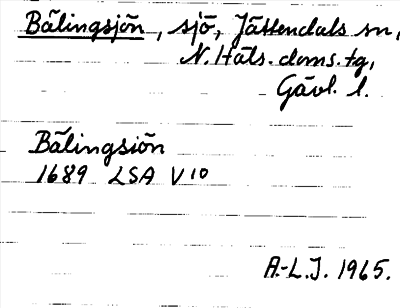 Bålingsjön, sjö, Jättendals sn,
N. Häls. doms. tg,
Gävl. l.
Bålingsiön
1689 LSA V10
A.-L.J. 1965.